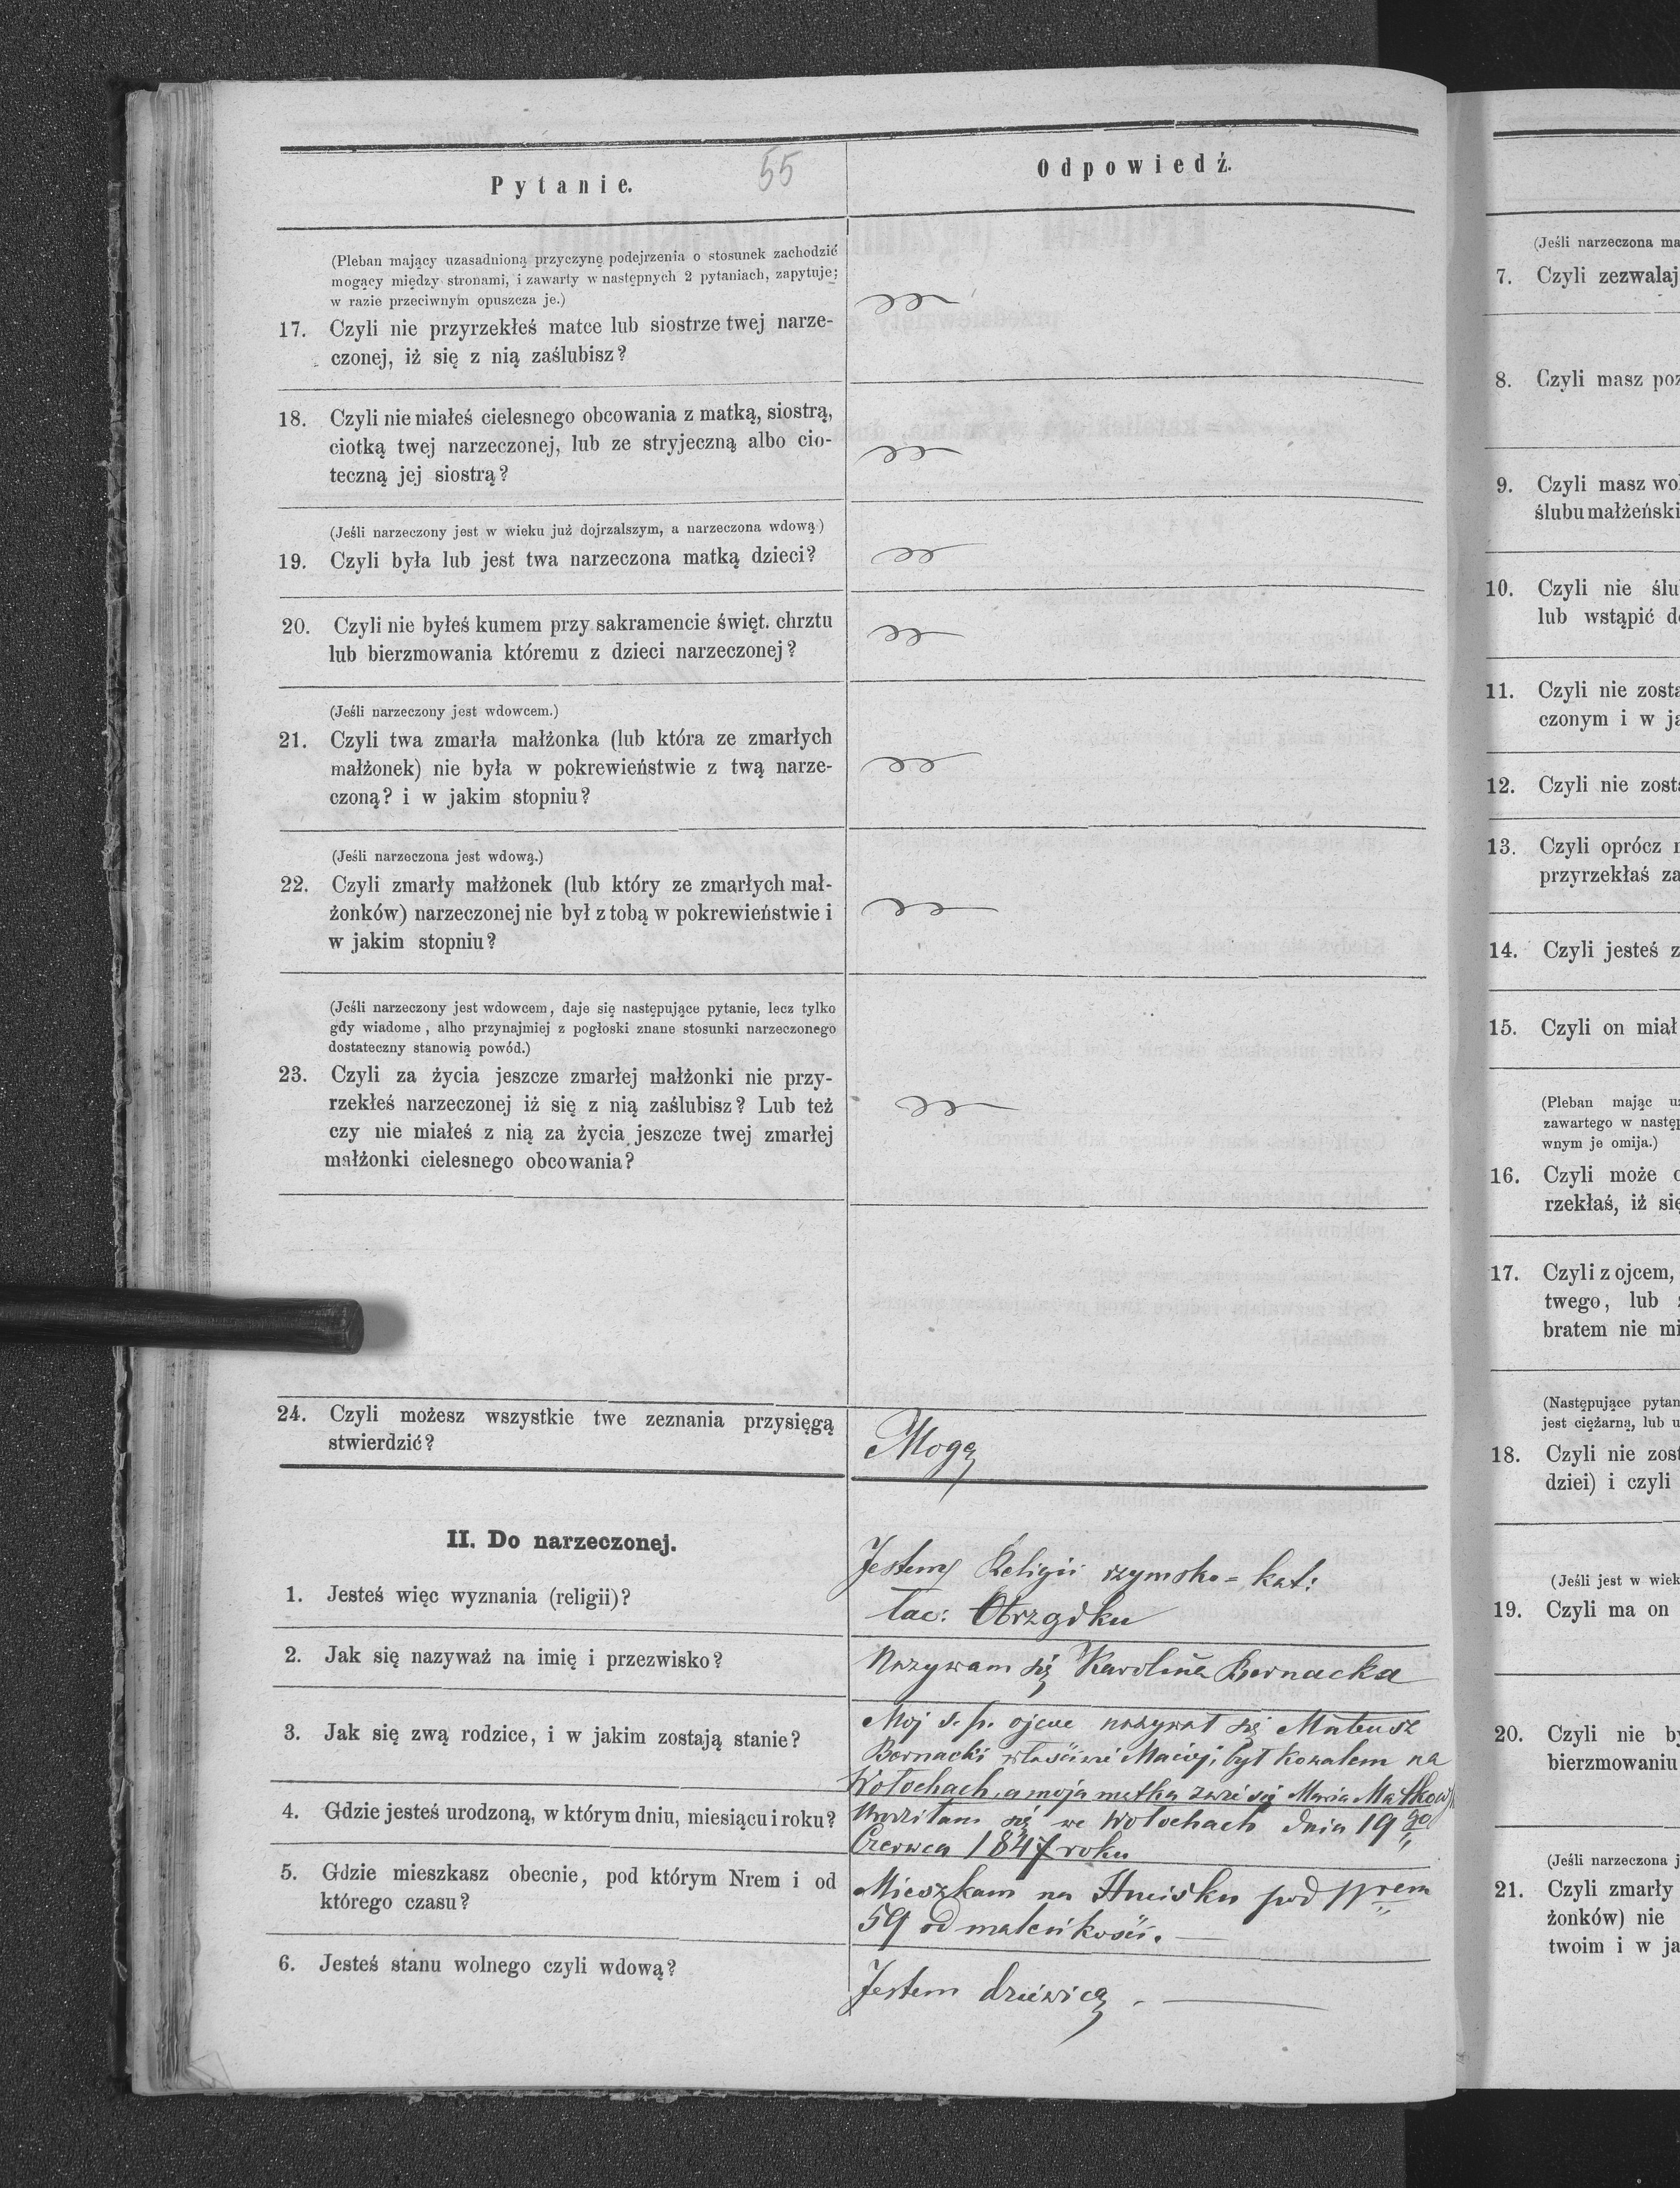 Pytanie.
55
Odpowiedź.
(Pleban mający uzasadnioną przyczynę podejrzenia o stosunek zachodzić
mogący między stronami, i zawarty w następnych 2 pytaniach, zapytuje;
w razie przeciwnym opuszcza je.)
17. Czyli nie przyrzekłeś matce lub siostrze twej narze-
czonej, iż się z nią zaślubisz?
18. Czyli nie miałeś cielesnego obcowania z matką, siostrą,
ciotką twej narzeczonej, lub ze stryjeczną albo cio-
teczną jej siostrą?
(Jeśli narzeczony jest w wieku już dojrzalszym, a narzeczona wdową)
19. Czyli była lub jest twa narzeczona matką dzieci?
20. Czyli nie byłeś kumem przy sakramencie święt. chrztu
lub bierzmowania któremu z dzieci narzeczonej?
(Jeśli narzeczony jest wdowcem.)
21. Czyli twa zmarła małżonka (lub która ze zmarłych
małżonek) nie była w pokrewieństwie z twą narze-
czoną? i w jakim stopniu?
(Jeśli narzeczona jest wdową.)
22. Czyli zmarły małżonek (lub który ze zmarłych mał-
żonków) narzeczonej nie był z tobą w pokrewieństwie i
w jakim stopniu?
(Jeśli narzeczony jest wdowcem, daje się następujące pytanie, lecz tylko
gdy wiadome, alho przynajmiej z pogłoski znane stosunki narzeczonego
dostateczny stanowią powód.)
23. Czyli za życia jeszcze zmarłej małżonki nie przy-
rzekłeś narzeczonej iż się z nią zaślubisz? Lub też
czy nie miałeś z nią za życia jeszcze twej zmarłej
małżonki cielesnego obcowania?
24. Czyli możesz wszystkie twe zeznania przysięgą
stwierdzić?
Mogę
II. Do narzeczonej.
1. Jesteś więc wyznania (religii)?
Jestem Religii rzymsko=kat:
łac: Obrządku
2. Jak się nazyważ na imię i przezwisko?
Nazywam się Karolina Bernacka
3. Jak się zwą rodzice, i w jakim zostają stanie?
Moj ś. p. ojciec nazywał się Mateusz
Bernacki właściwie Maciej, był kowalem na
Wołochach, a moja matka zwie się Maria
4. Gdzie jesteś urodzoną, w którym dniu, miesiącu i roku?
Urodziłam się we Wołochach dnia 19go
Czerwca 1847 roku
5. Gdzie mieszkasz obecnie, pod którym Nrem i od
którego czasu?
Mieszkam na Hucisku pod Nrem
59 od maleńkości.
6. Jesteś stanu wolnego czyli wdową?
Jestem dziewicą.
(Jeśli narzeczona ma
7. Czyli zezwalaj
8. Czyli masz poz
9. Czyli masz wol
ślubu małżeński
10. Czyli nie ślu
lub wstąpić d
11. Czyli nie zosta
czonym i w ja
12. Czyli nie zosta
13. Czyli oprócz
przyrzekłaś za
14. Czyli jesteś z
15. Czyli on miał
(Pleban mając uz
zawartego w następ
wnym je omija.)
16. Czyli może
rzekłaś, iż się
17. Czyli z ojcem,
twego, lub
bratem nie mi
(Następujące pytan
jest ciężarną, lub u
18. Czyli nie zost
dziei) i czyli
(Jeśli jest w wiek
19. Czyli ma on
20. Czyli nie by
bierzmowaniu
(Jeśli narzeczona j
21. Czyli zmarły
żonków) nie
twoim i w ja